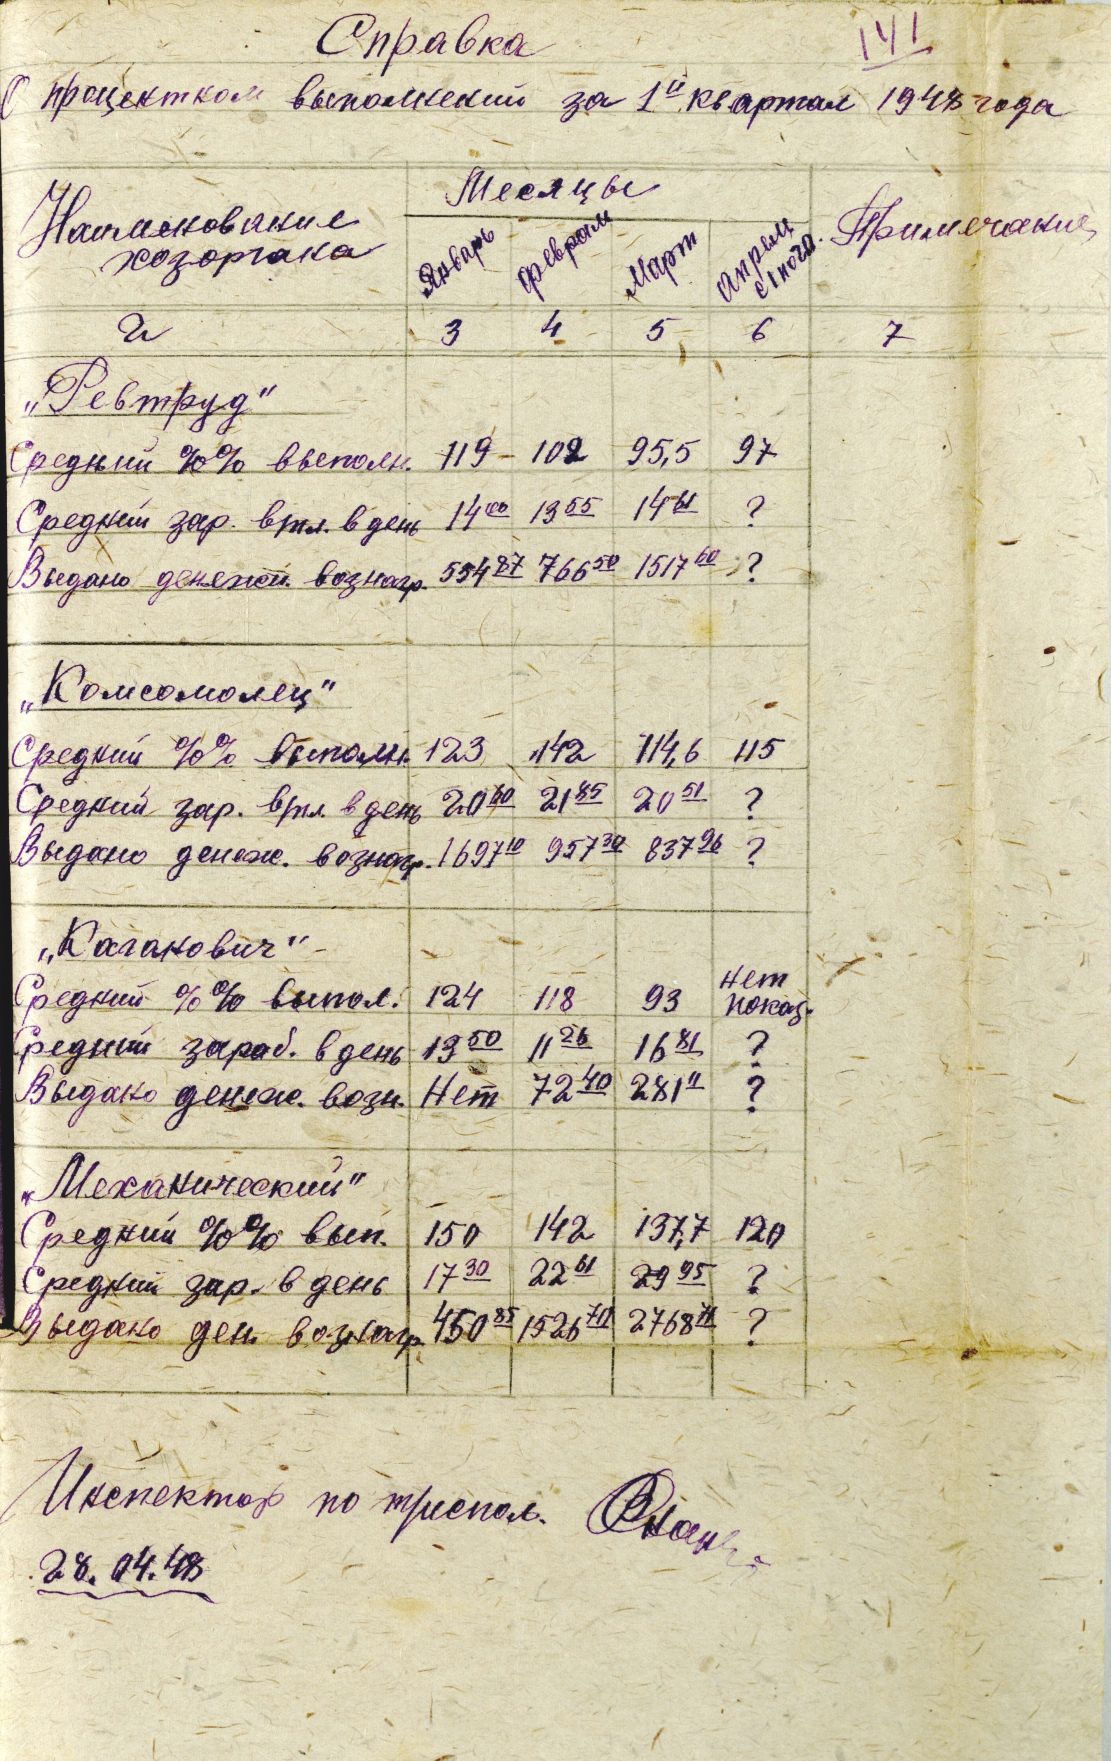 141
Справка
О процентном выполнении за 1й квартал 1948 года
Наименование хозоргана Месяцы Примечание
Январь Февраль Март Апрель
2 3 4 5 6 7
„Ревтруд"
Средний %% выполн. 119 102 95,5 97
Средний зар. в/пл. в день 14 00 13 55 14 61 ?
Выдано денежн. вознагр. 554 87 766 50 1517 60 ?
„Комсомолец"
Средний %% выполн. 123 142 114,6 115
Средний зар. в/пл. в день 20 60 21 85 20 51 ?
Выдано денеж. вознагр. 1697 10 957 30 837 96 ?
„Каганович"
Средний %% выпол. 124 118 93 нет показ.
Средний зараб. в день 13 50 11 26 16 81 ?
Выдано денеж. возн. Нет 72 40 281 11 ?
„Механический"
Средний %% вып. 150 142 137,7 120
Средний зар. в день 17 30 22 61 29 95 ?
Выдано ден. вознагр. 450 85 1526 70 2768 71 ?
Инспектор по труспол.
28.04.48